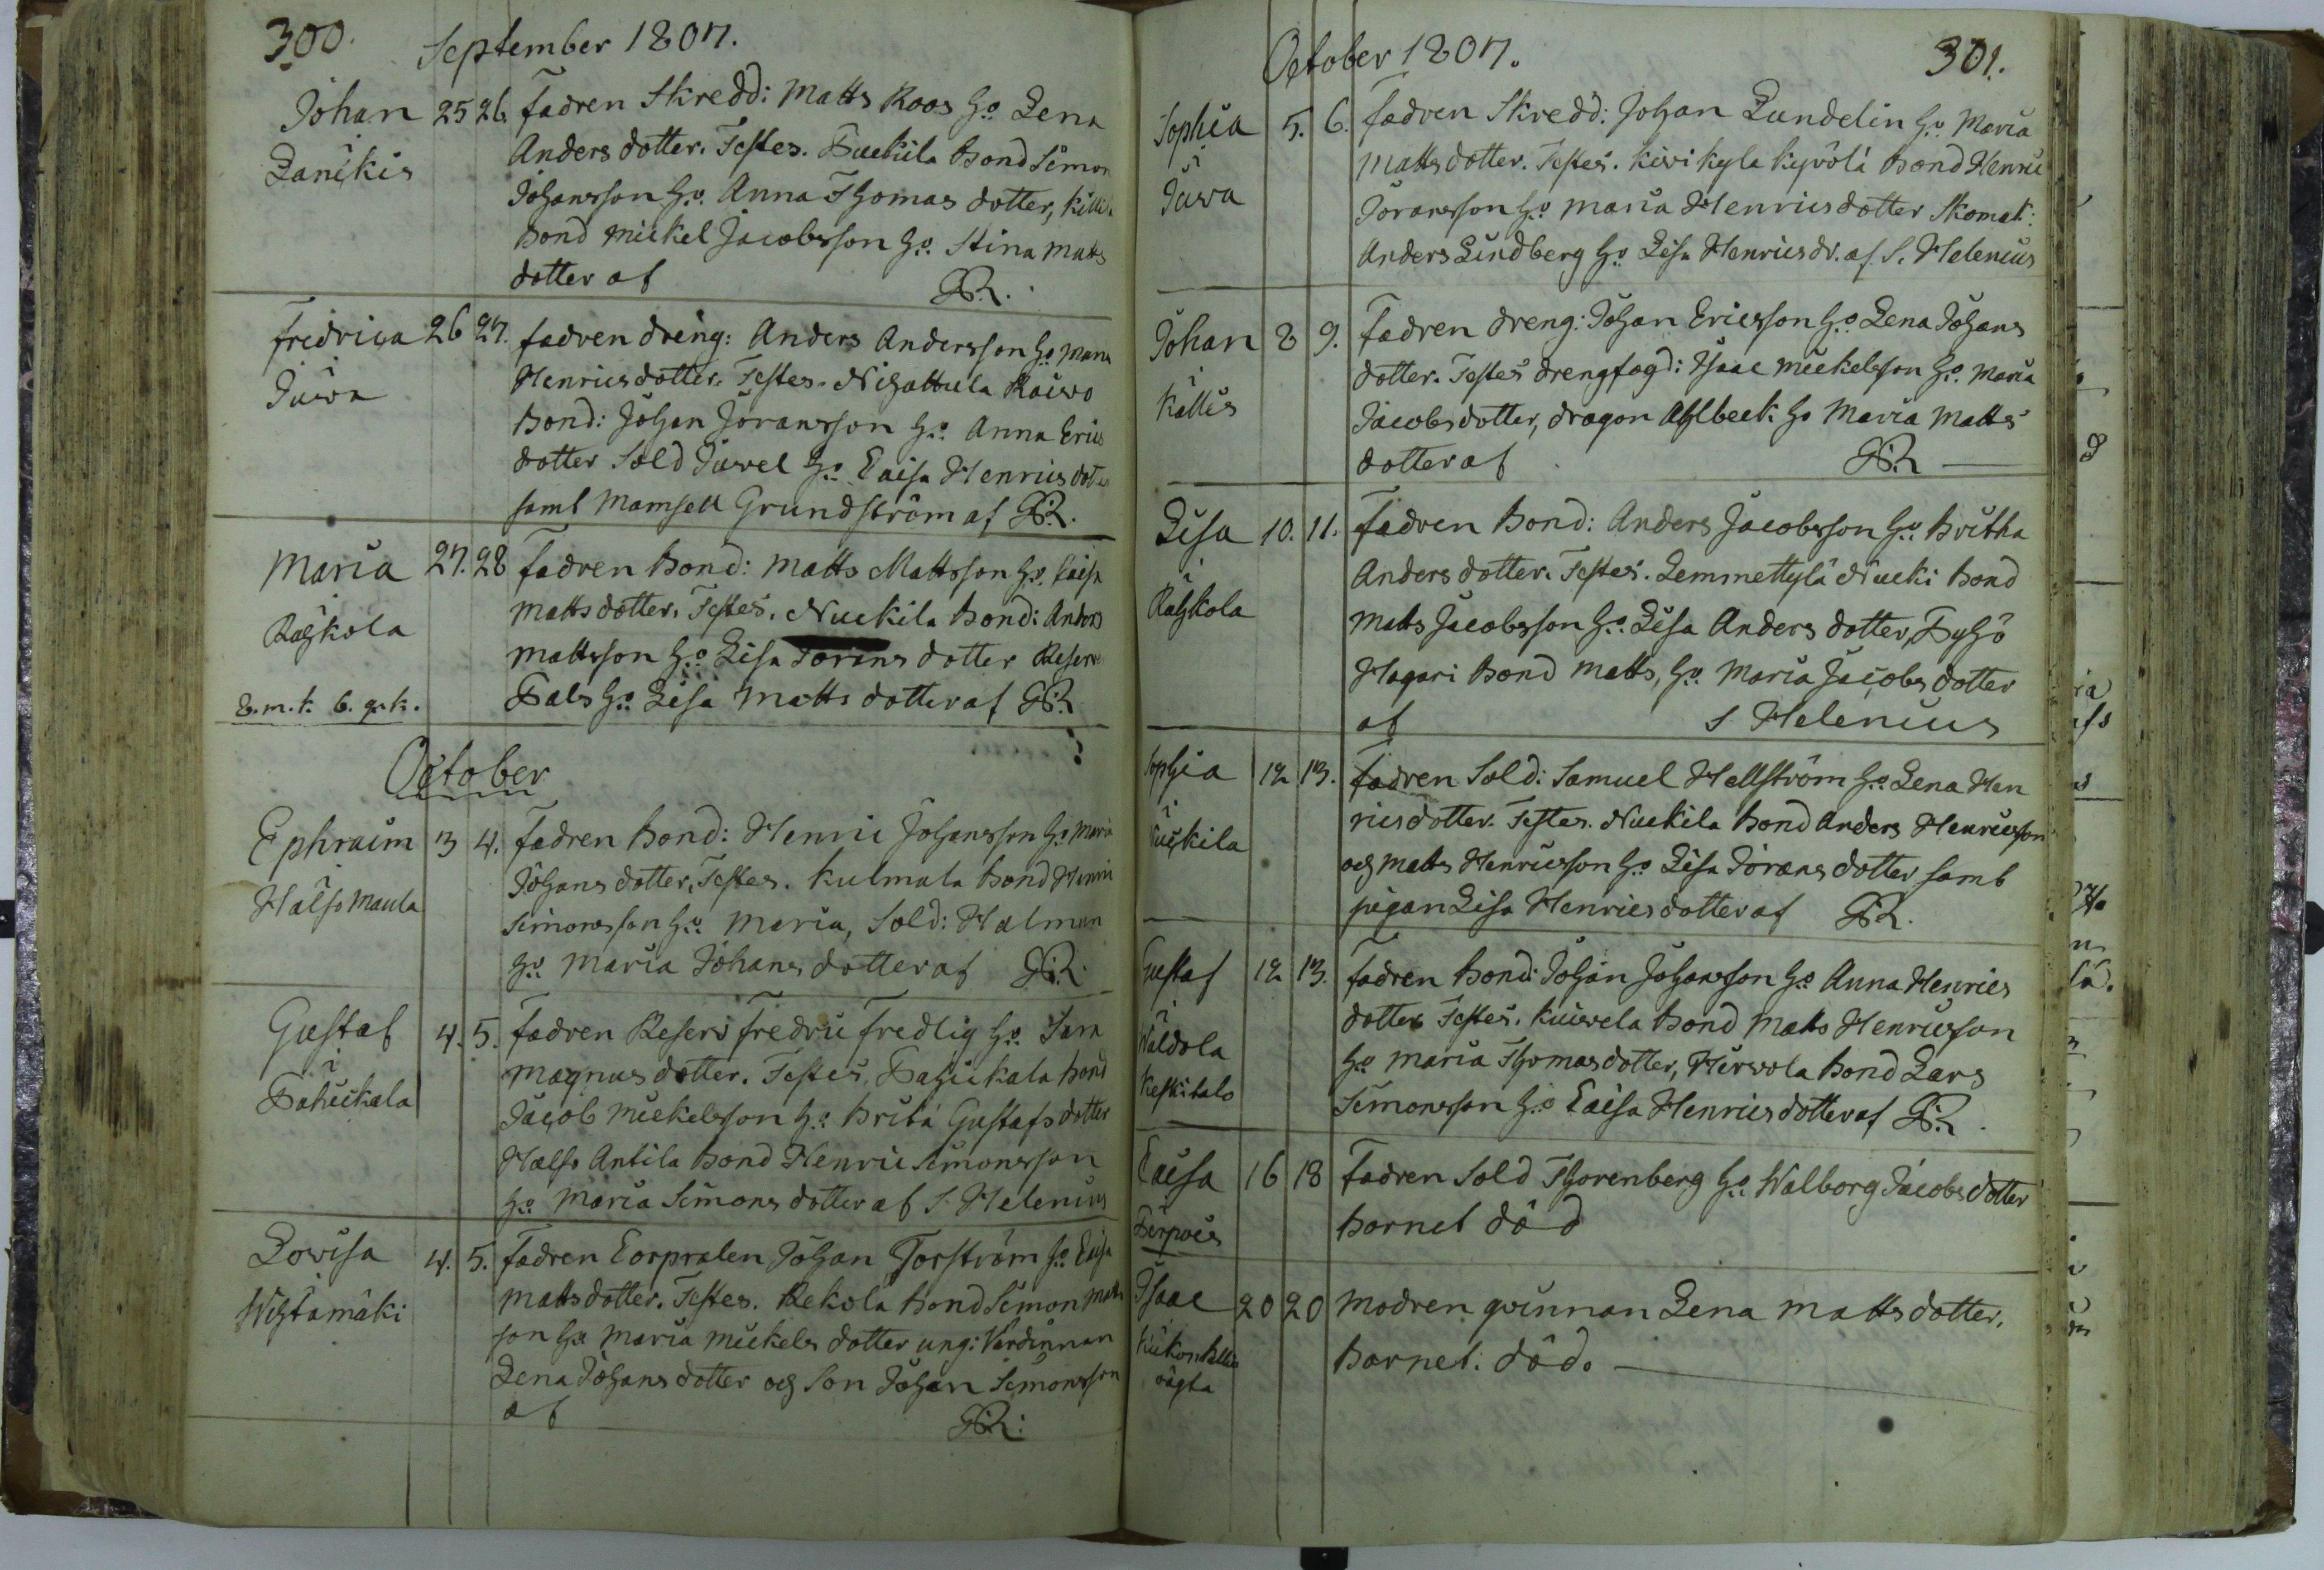 300. September 1807.
Johan 25 26. fadren Skredd: Matts Roos H:o Lena
i Anders dotter. Testes. Bond Simon
Johansson H:o Anna Thomas dotter,
bond Mickel Jacobsson H:o Stina Matts
dotter af
Fredrica 26 27. fadren dreng: Anders Andersson H:o Maria
i Juva Henricsdotter. Testes. Nihattula
Bond: Johan Jöransson H:o Anna Erics
dotter Sold Juvel H:o Caisa Henrics dotter
samt Mamsell Grundström af
Maria 27. 28 fadren Bond: Matts Mattsson H:o Caisa
i Rahkola Mattsdotter. Testes. Nuckila Bond: Anders
Mattsson H:o Lisa Jörans dotter Reserv
E.m.k. 6. g.k. H:o Lisa Matts dotter af
October
Ephraim 3 4. fadren Bond: Henric Johansson H:o Maria
i Johans dotter. Testes. Kulmala Bond Henric
Simonsson H:o Maria, Sold: Halman
H:o Maria Johans dotter af
Gustaf 4. 5. fadren Reserv Fredric Fredlig H:o Sara
i Pahickala Magnus dotter. Testes. Pahickala Bond
Jacob Mickelsson H:o Brita Gustafs dotter
Antila Bond Henric Simonsson
H:o Maria Simons dotter af S. Helenius
Lovisa 4. 5. fadren Corpralen Johan Torström H:o Caisa
i Wihtamäki Mattsdotter. Testes. Rekola Bond Simon Matts
son H:o Maria Mickels dotter ung: Värdinnan
Lena Johans dotter och Son Johan Simonsson
af
October 1807. 301.
Sophia 5. 6. fadren Skredd: Johan Lundelin H:o Maria
i Juva Mattsdotter. Testes. Kivikyla Bond Henric
Jöransson H:o Maria Henricsdotter Skomak:
Anders Lindberg H:o Lisa Henricsdr. af S. Helenius
Johan 8 9. fadren dreng: Johan Ericsson H:o Lena Johans
i dotter. Testes drengfogd: Isaac Mickelsson H:o Maria
Jacobsdotter, dragon Ahlbeck H:o Maria Matts
dotter af
Lisa 10. 11. fadren Bond: Anders Jacobsson H:o Britha
i Rahkola Anders dotter. Testes. Lemmettylä Bond
Matts Jacobsson H:o Lisa Anders dotter,
Bond Matts, H:o Maria Jacobs dotter
af S Helenius
Sophia 12 13. fadren Sold: Samuel Hellström H:o Lena Hen
i Nuckila ricsdotter. Testes. Nuckila Bond Anders Henricsson
och Matts Henricsson H:o Lisa Jörans dotter samt
pigan Lisa Henricsdotter af
Gustaf 12 13. fadren Bond: Johan Johansson H:o Anna Henrics
i dotter Testes. Bond Matts Henricsson
Keskitalo H:o Maria Thomasdotter, Hirvola Bond Lars
Simonsson H:o Caisa Henricsdotter af
Caisa 16 18 fadren Sold Thorenberg H:o Walborg Jacobs dotter
i barnet död
Isaac 20 20 Modren qvinnan Lena Matts dotter.
barnet. död.